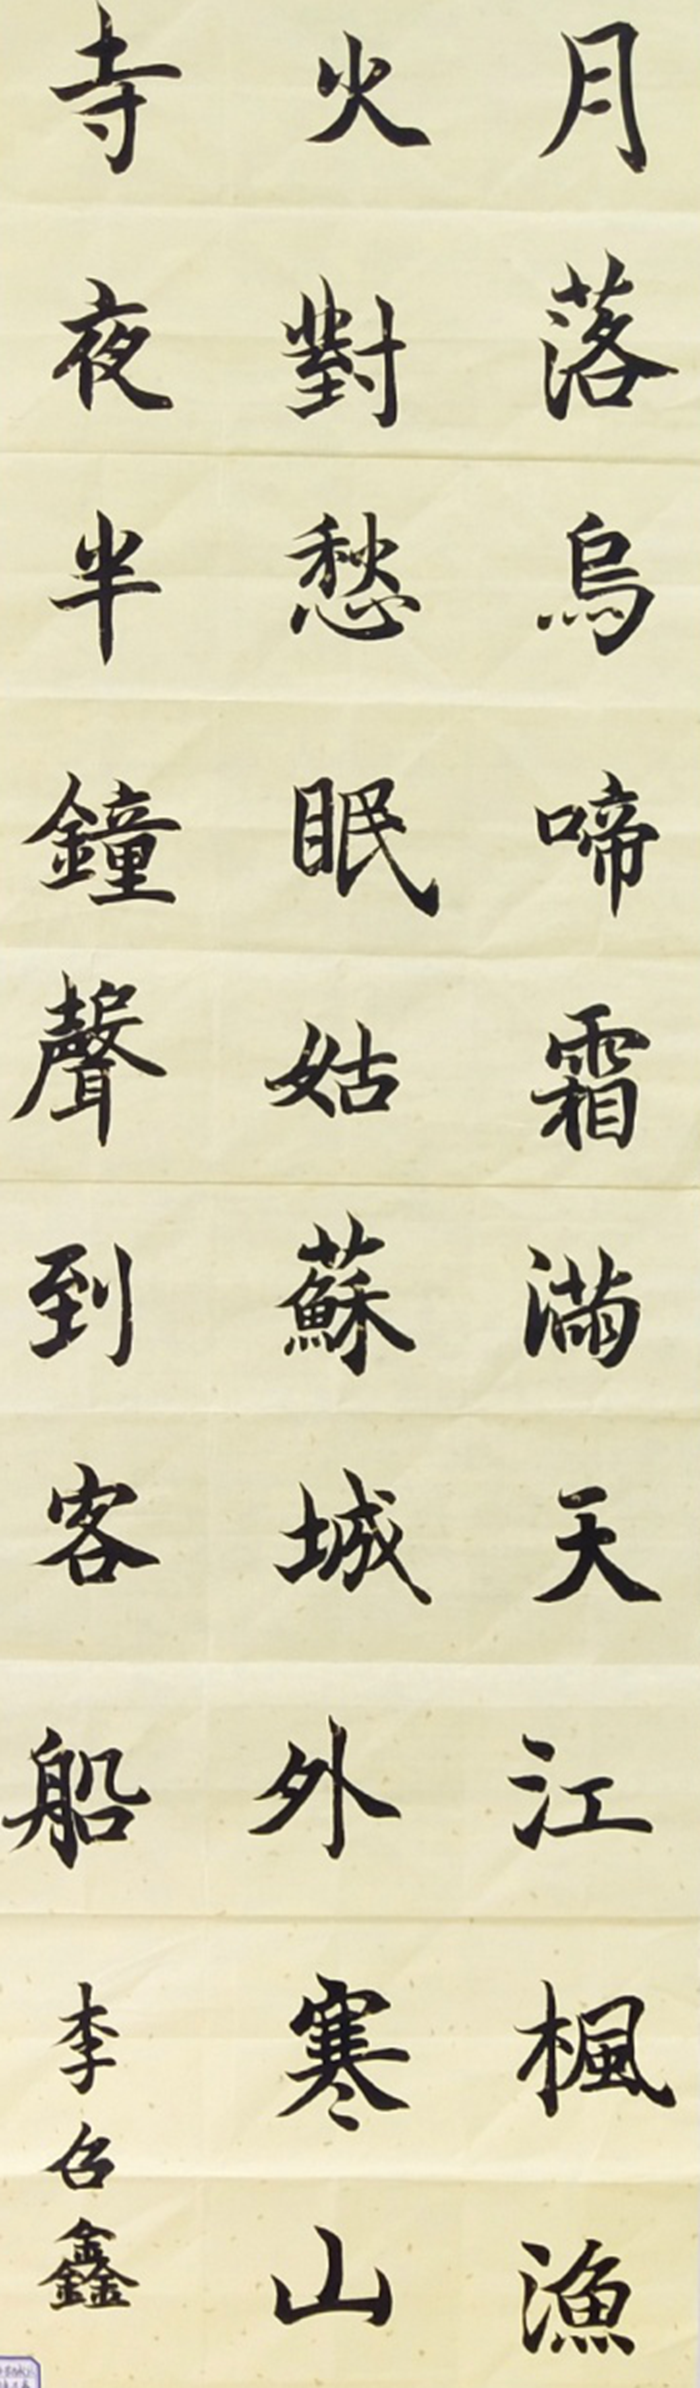 月落烏啼霜滿天江楓漁
火對愁眠姑蘇城外寒山
寺夜半鐘聲到客船
李召鑫